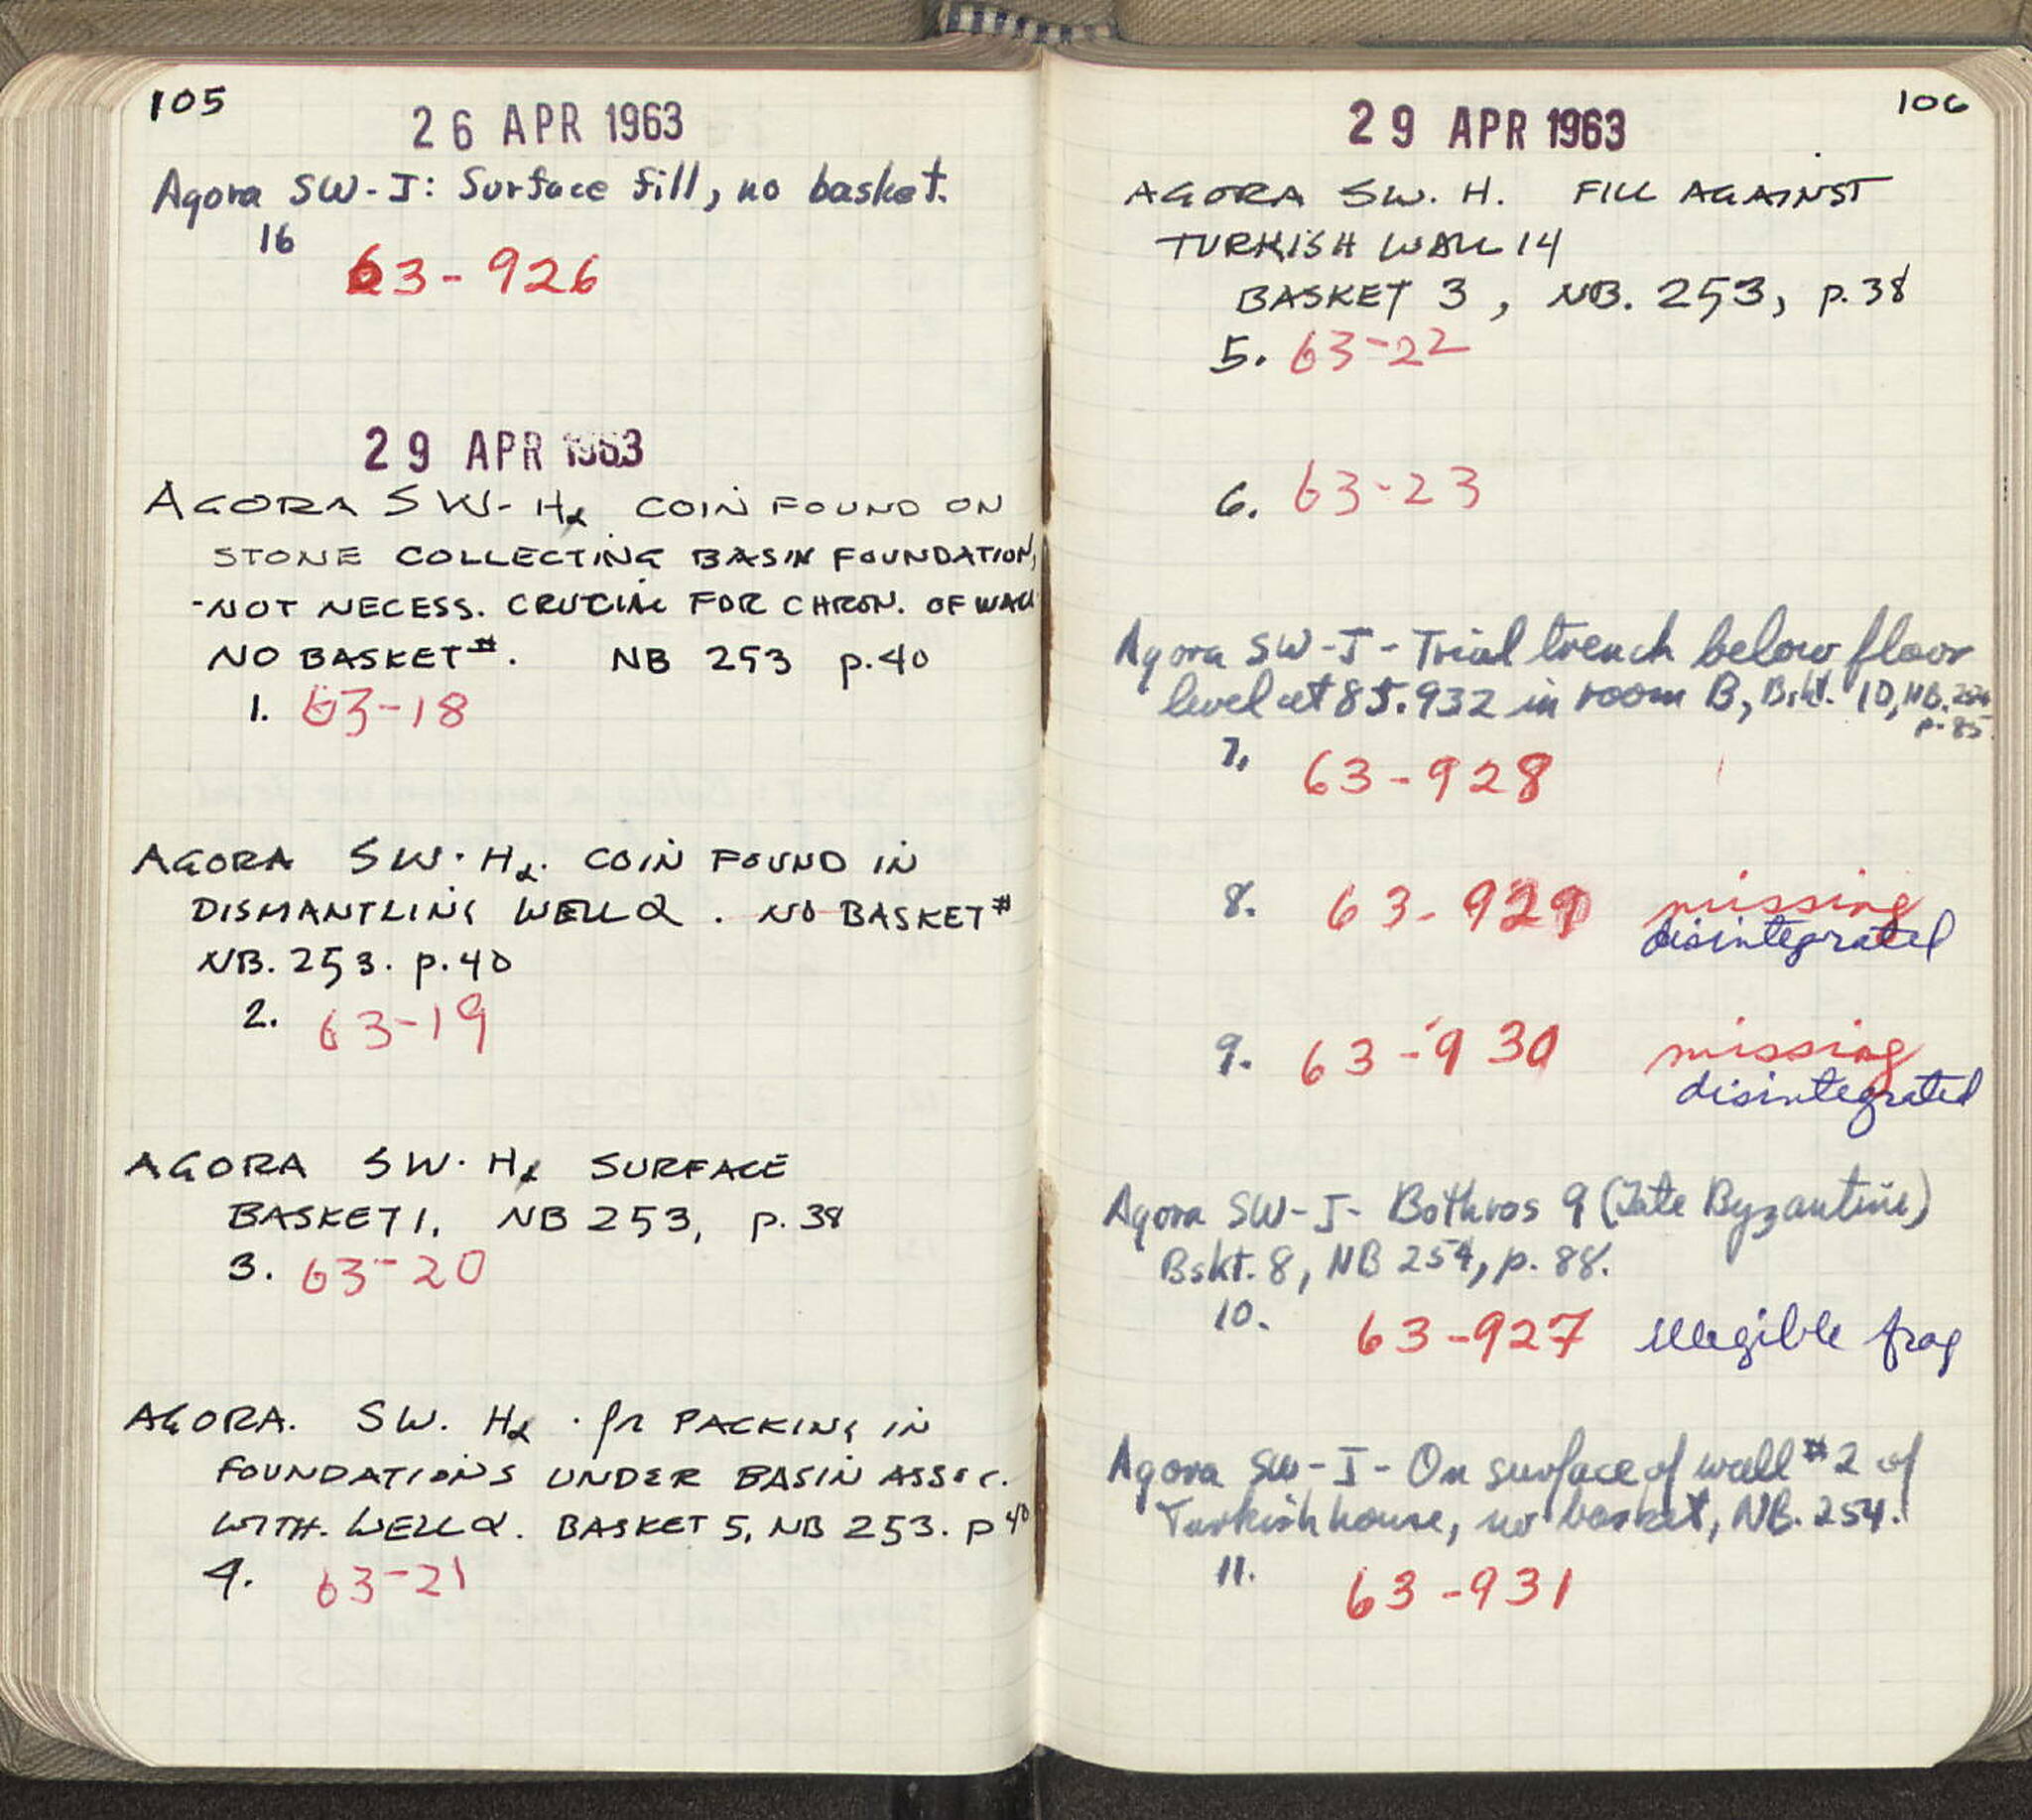 105
26 APR 1963
Agora SW-I: Surface fill, no basket.
16
63-926
29 APR 1963
AGORA SW-Hα COIN FOUND ON
STONE COLLECTING BASIN FOUNDATION,
-NOT NECESS. CRUCIAL FOR CHRON. OF WALL
NO BASKET#. NB 253 p.40
1. 63-18
AGORA SW. Hα. COIN FOUND IN
DISMANTLING WELL α. NO BASKET#
NB. 253. p.40
2. 63-19
AGORA SW. Hα SURFACE
BASKET 1, NB 253, p.38
3. 63-20
AGORA. SW. Hα. fr PACKING IN
FOUNDATIONS UNDER BASIN ASSOC.
WITH. WELL α. BASKET 5, NB 253. p 40
4. 63-21
106
29 APR 1963
AGORA SW. H. FILL AGAINST
TURKISH WALL 14
BASKET 3, NB. 253, p.38
5. 63-22
6. 63-23
Agora SW-I-Trial trench below floor
level at 85.932 in room B, Bskt. 10, NB.254
p.85.
7. 63-928
8. 63-929 missing
disintegrated
9. 63-930 missing
disintegrated
Agora SW-I- Bothros 9 (Late Byzantine)
Bskt. 8, NB 254, p. 88.
10. 63-927 illegible frag
Agora SW-I-On surface of wall #2 of
Turkish house, no basket, NB. 254.
11. 63-931